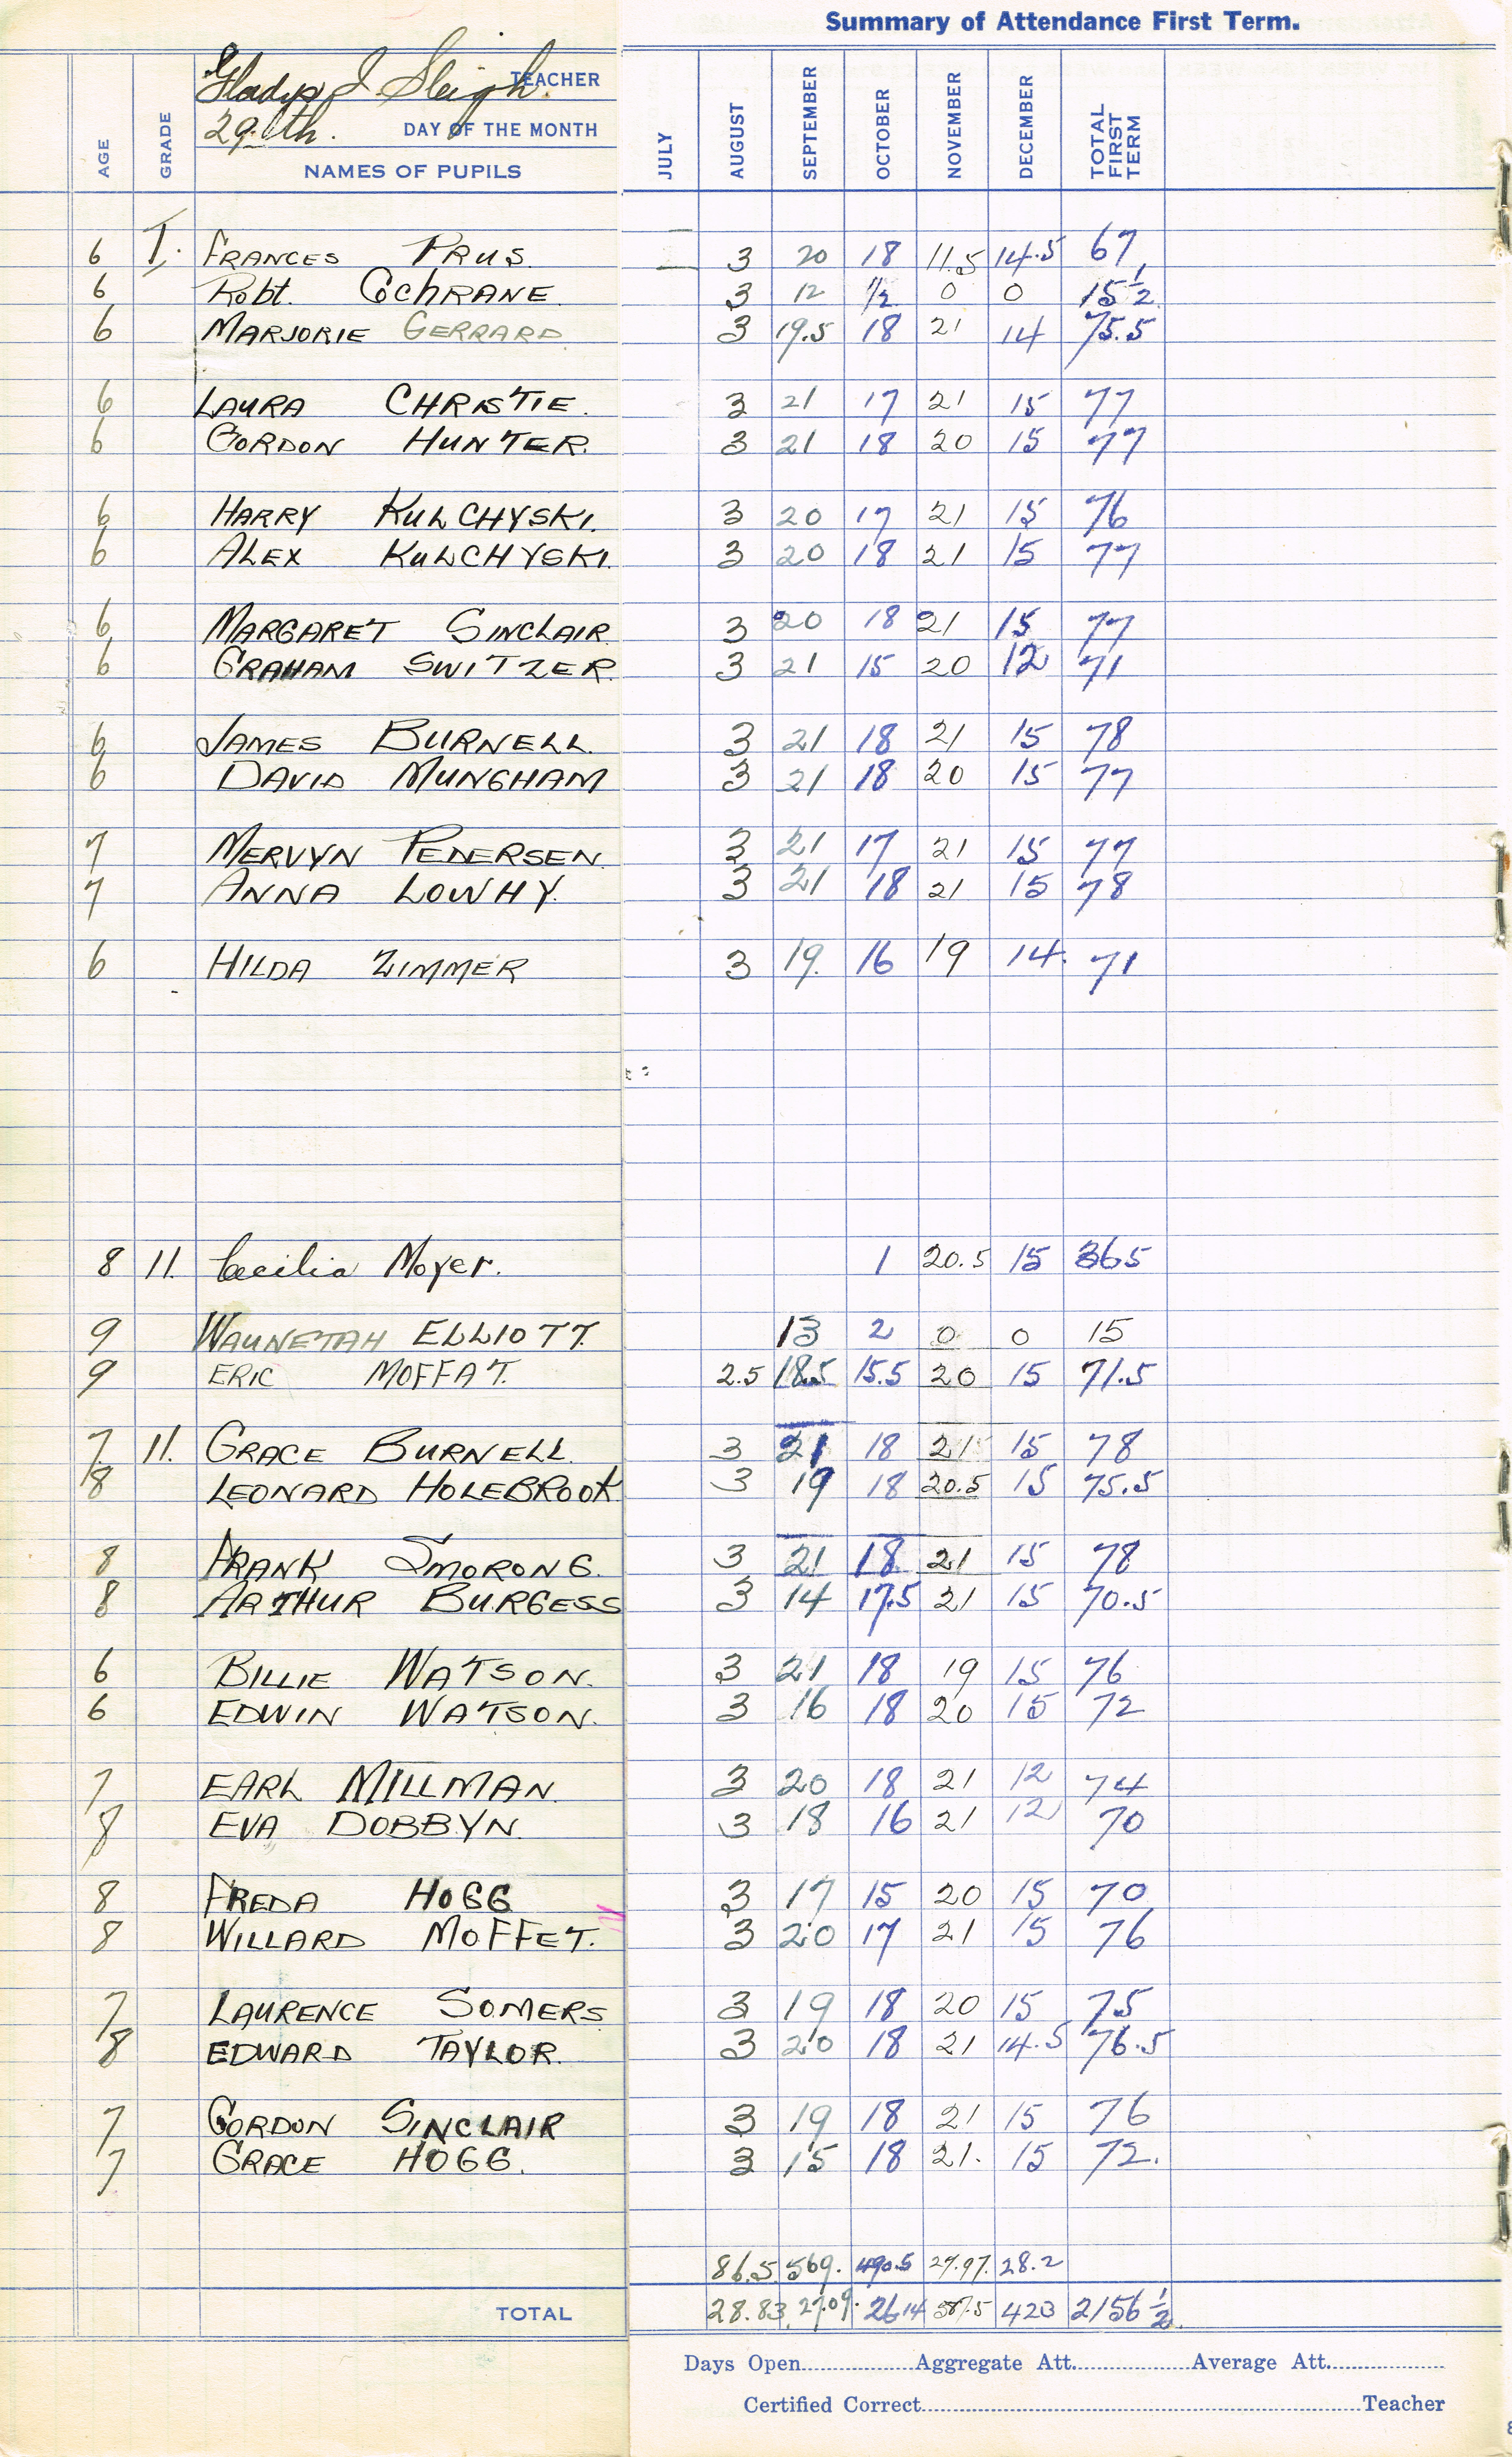 Summary of Attendance First Term.
Gladys J Sleigh. TEACHER
29th. DAY OF THE MONTH
AGE GRADE NAMES OF PUPILS JULY AUGUST SEPTEMBER OCTOBER NOVEMBER DECEMBER TOTAL FIRST TERM
6 I. FRANCES PRUS. 3 20 18 11.5 14.5 67
6 Robt. COCHRANE 3 12 1/2 0 0 15 1/2
6 MARJORIE GERRARD 3 19.5 18 21 14 75.5
6 LAURA CHRISTIE. 3 21 17 21 15 77
6 GORDON HUNTER. 3 21 18 20 15 77
6 HARRY KULCHYSKI. 3 20 17 21 15 76
6 ALEX KULCHYSKI. 3 20 18 21 15 77
6 MARGARET SINCLAIR 3 20 18 21 15 77
6 GRAHAM SWITZER. 3 21 15 20 12 71
6 JAMES BURNELL. 3 21 18 21 15 78
6 DAVID MUNGHAM 3 21 18 20 15 77
7 MERVYN PEDERSEN. 3 21 17 21 15 77
7 ANNA LOWHY. 3 21 18 21 15 78
6 HILDA ZIMMER 3 19. 16 19 14. 71
8 11. Cecilia Moyer. 1 20.5 15 365
9 WAUNETAH ELLIOTT. 13 2 0 0 15
9 ERIC MOFFAT. 2.5 18.5 15.5 20 15 71.5
7 11. GRACE BURNELL. 3 21 18 21 15 78
8 LEONARD HOLEBROOK 3 19 18 20.5 15 75.5
8 FRANK SMORONG. 3 21 18 21 15 78
8 ARTHUR BURGESS 3 14 17.5 21 15 70.5
6 BILLIE WATSON. 3 21 18 19 15 76
6 EDWIN WATSON. 3 16 18 20 15 72
7 EARL MILLMAN. 3 20 18 21 12 74
8 EVA DOBBYN. 3 18 16 21 12 70
8 FREDA HOGG 3 17 15 20 15 70
8 WILLARD MOFFET. 3 20 17 21 15 76
7 LAURENCE SOMERS 3 19 18 20 15 75
8 EDWARD TAYLOR. 3 20 18 21 14.5 76.5
7 GORDON SINCLAIR 3 19 18 21 15 76
7 GRACE HOGG. 3 15 18 21. 15 72.
86.5 569. 490.5 27.97. 28.2
TOTAL 28.83 27.09. 26 14 587.5 423 2156 1/2.
Days Open Aggregate Att. Average Att.
Certified Correct Teacher